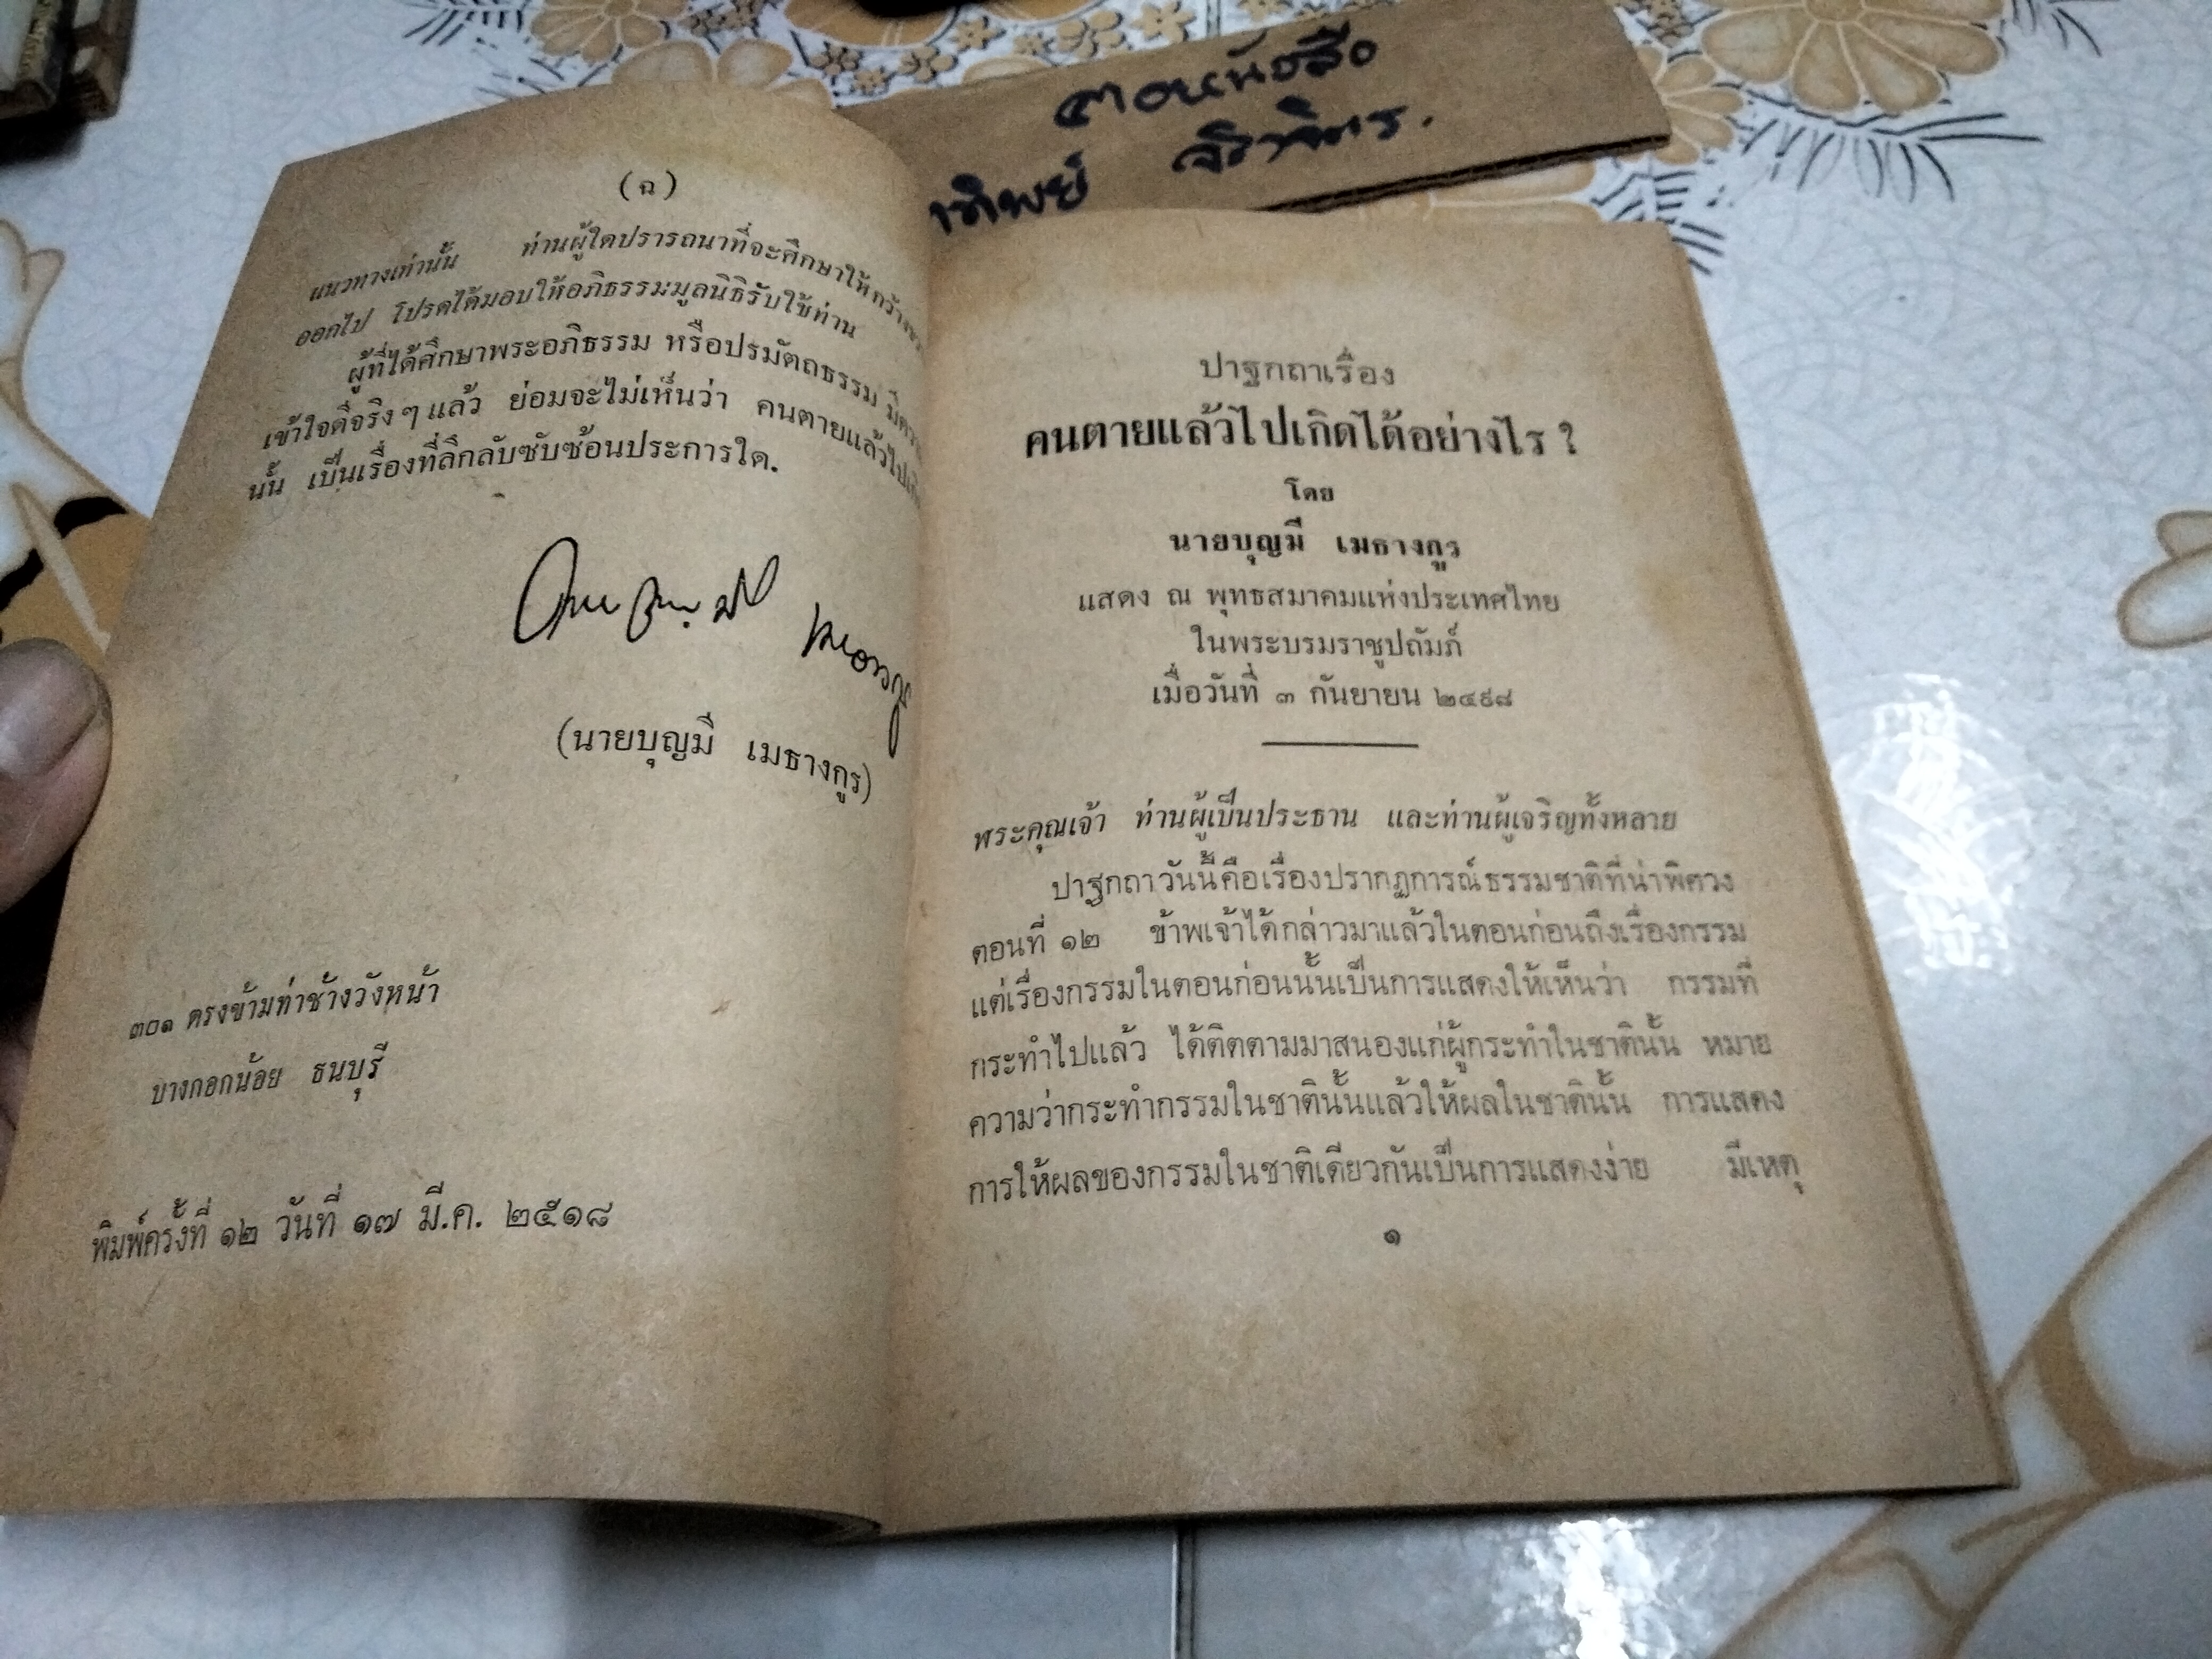 ตอบหนังสือ
าทิพย์
(ฉ)
แนวทางเท่านั้น ท่านผู้ใดปรารถนาที่จะศึกษาให้
ออกไป โปรดได้มอบให้อภิธรรมมูลนิธิรับใช้ท่าน
ผู้ที่ได้ศึกษาพระอภิธรรม หรือปรมัตถธรรม
เข้าใจดีจริง ๆ แล้ว ย่อมจะไม่เห็นว่า คนตายแล้วไป
นั้น เป็นเรื่องที่ลึกลับซับซ้อนประการใด.
(นายบุญมี เมธางกูร)
๓๐๑ ตรงข้ามท่าช้างวังหน้า
บางกอกน้อย ธนบุรี
พิมพ์ครั้งที่ ๑๒ วันที่ ๑๗ มี.ค. ๒๕๑๘
ปาฐกถาเรื่อง
คนตายแล้วไปเกิดได้อย่างไร ?
โดย
นายบุญมี เมธางกูร
แสดง ณ พุทธสมาคมแห่งประเทศไทย
ในพระบรมราชูปถัมภ์
เมื่อวันที่ ๓ กันยายน ๒๔๙๘
พระคุณเจ้า ท่านผู้เป็นประธาน และท่านผู้เจริญทั้งหลาย
ปาฐกถาวันนี้คือเรื่องปรากฏการณ์ธรรมชาติที่น่าพิศวง
ตอนที่ ๑๒ ข้าพเจ้าได้กล่าวมาแล้วในตอนก่อนถึงเรื่องกรรม
แต่เรื่องกรรมในตอนก่อนนั้นเป็นการแสดงให้เห็นว่า กรรมที่
กระทำไปแล้ว ได้ติดตามมาสนองแก่ผู้กระทำในชาตินั้น หมาย
ความว่ากระทำกรรมในชาตินั้นแล้วให้ผลในชาตินั้น การแสดง
การให้ผลของกรรมในชาติเดียวกันเป็นการแสดงง่าย มีเหตุ
๑